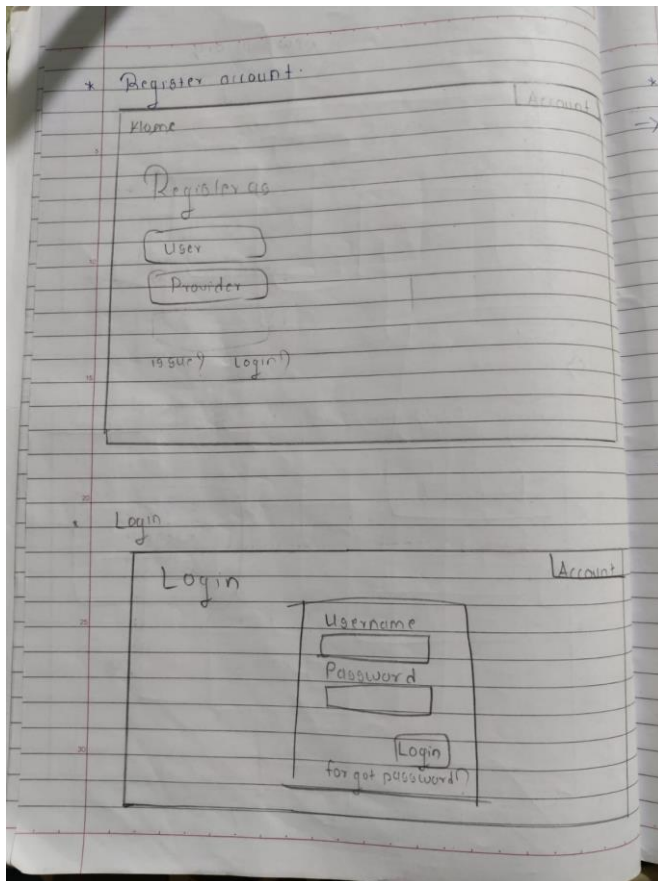 * Register account.
Account
Name
Register as
User
Provider
issue? Login?
Login
Login
Account
Username
Password
Login
forgot password?